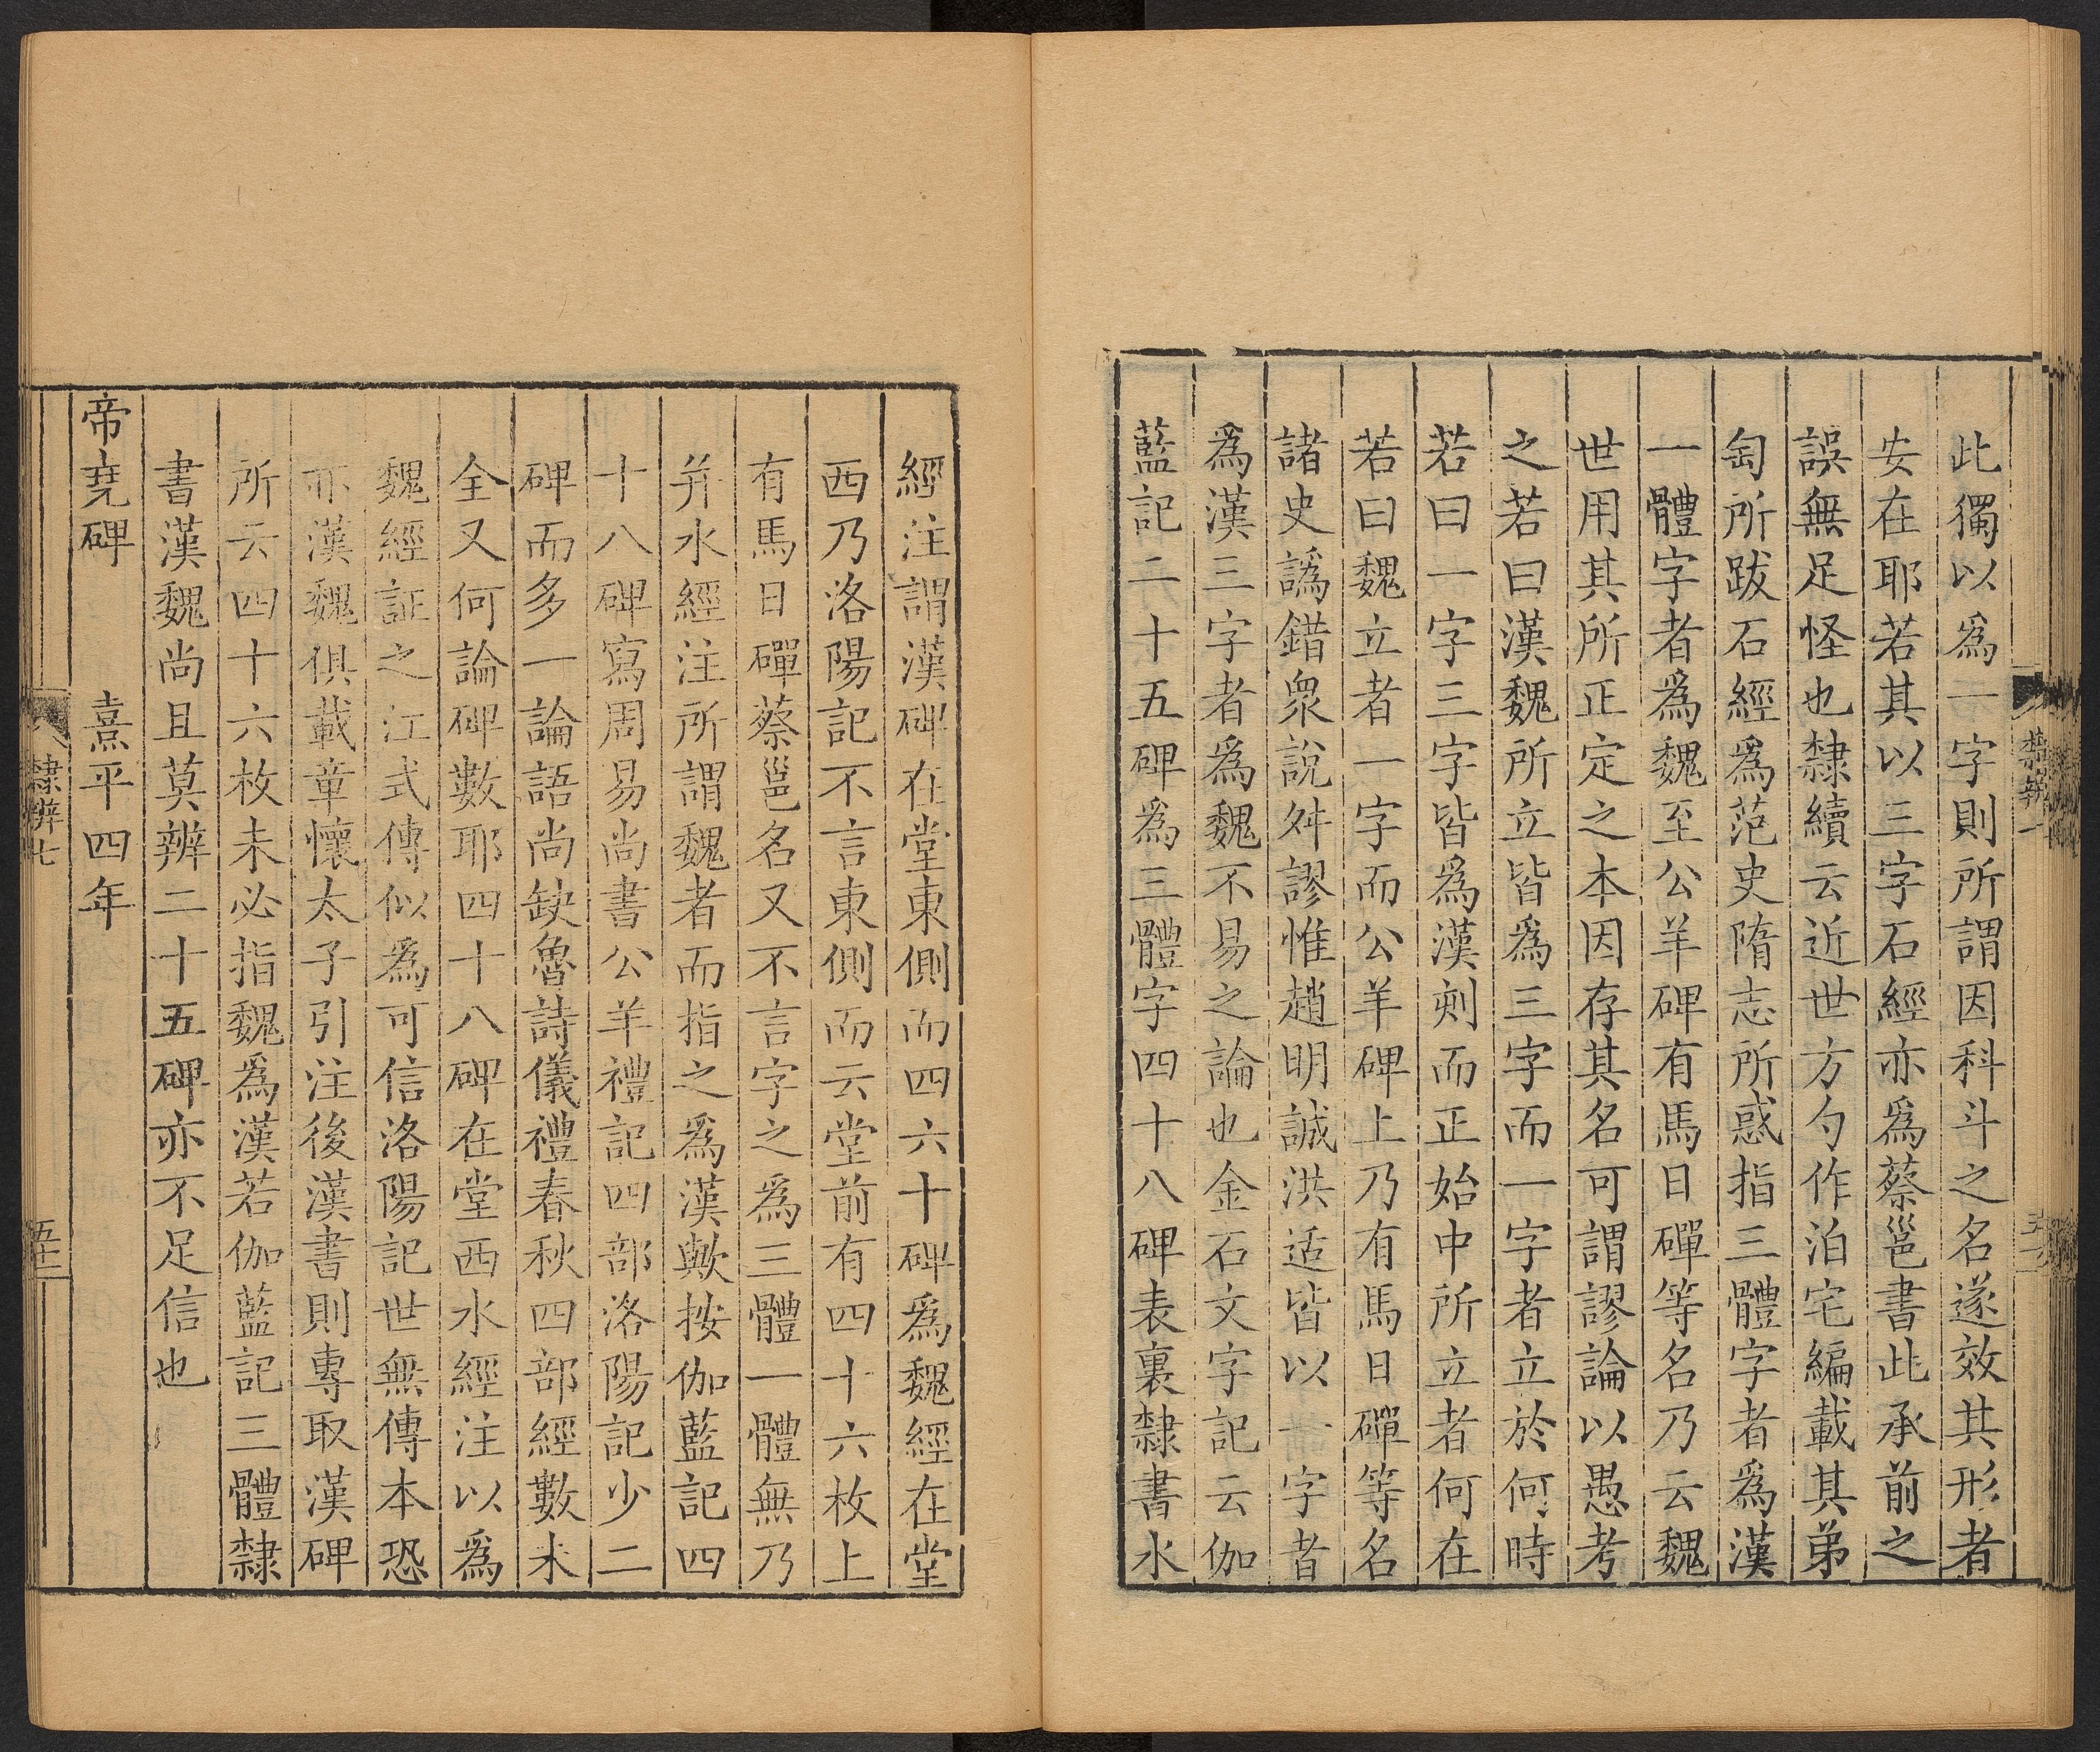 此獨以爲一字則所謂因科斗之名遂效其形者
安在耶若其以三字石經亦爲蔡邕書此承前之
誤無足怪也隸續云近世方勺作泊宅編載其弟
匋所跋石經爲范史隋志所惑指三體字者爲漢
一體字者爲魏至公羊碑有馬日磾等名乃云魏
世用其所正定之本因存其名可謂謬論以愚考
之若曰漢魏所立皆爲三字而一字者立於何時
若曰一字三字皆爲漢刻而正始中所立者何在
若曰魏立者一字而公羊碑上乃有馬日磾等名
諸史譌錯衆說舛謬惟趙明誠洪适皆以一字者
爲漢三字者爲魏不易之論也金石文字記云伽
藍記二十五碑爲三體字四十八碑表裏隸書水
經注謂漢碑在堂東側而四六十碑爲魏經在堂
西乃洛陽記不言東側而云堂前有四十六枚上
有馬日磾蔡邕名又不言字之爲三體一體無乃
幷水經注所謂魏者而指之爲漢歟按伽藍記四
十八碑寫周易尚書公羊禮記四部洛陽記少二
碑而多一論語尚缺魯詩儀禮春秋四部經數未
全又何論碑數耶四十八碑在堂西水經注以爲
魏經証之江式傳似爲可信洛陽記世無傳本恐
亦漢魏俱載章懷太子引注後漢書則專取漢碑
所云四十六枚未必指魏爲漢若伽藍記三體隸
書漢魏尚且莫辨二十五碑亦不足信也
帝堯碑　熹平四年
隸辨七
五十一